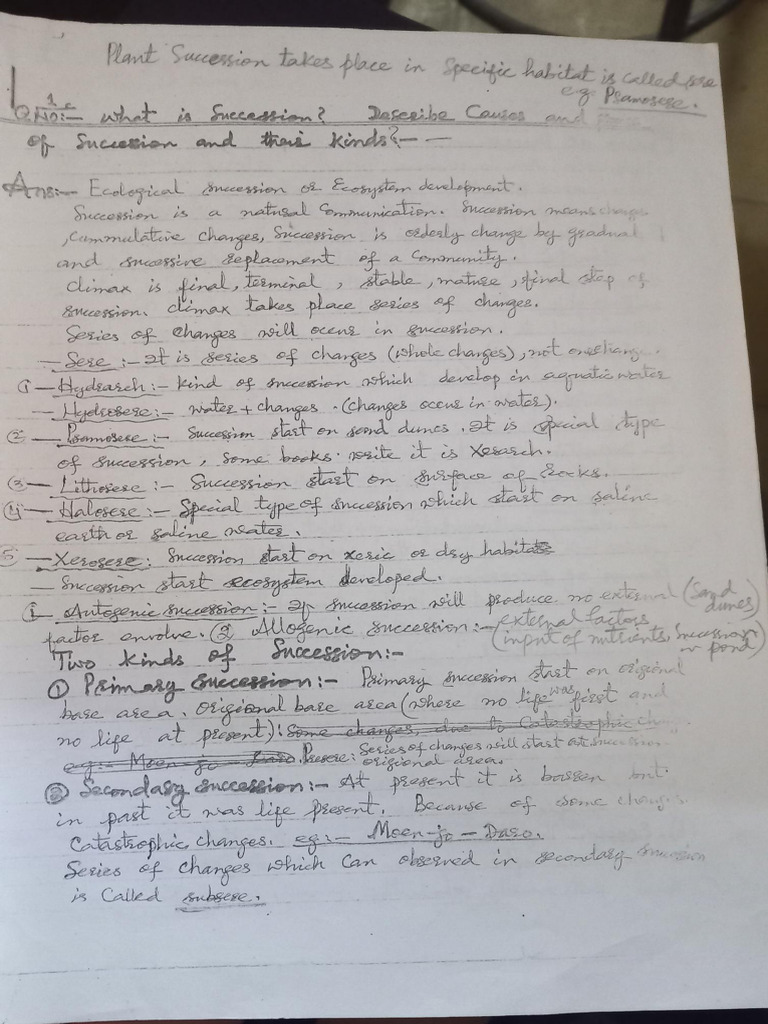 Plant Succession takes place in Specific habitat is called sere
eg Psamosere.
Q.No:- 1 What is Succession? Describe Causes and
of Succession and their kinds?--
Ans:- Ecological succession or Ecosystem development.
Succession is a natural Communication. Succession means change
, Cummulative changes, Succession is orderly change by gradual
and successive replacement of a Community.
Climax is final, terminal, stable, mature, final step of
succession. climax takes place series of changes.
Series of changes will occur in succession.
- Sere :- It is series of changes (whole changes), not one change.
① - Hydrarch :- kind of succession which develop in aquatic water
- Hydrosere :- water + changes. (changes occur in water).
② - Psamosere :- Succession start on sand dunes. It is special type
of succession, some books write it is Xerarch.
③ - Lithosere :- Succession start on surface of Rocks.
④ - Halosere :- Special type of succession which start on saline
earth or saline water.
⑤ - Xerosere: Succession start on xeric or dry habitats
- Succession start ecosystem developed.
① Autogenic succession :- If succession will produce no external (Sand dunes)
factor envolve. ② Allogenic succession :- (external factors, input of nutrients, in pond)
Two kinds of Succession:-
① Primary succession :- Primary succession start on origional
bare area. Origional bare area (where no life was first and
no life at present): Some changes, due to Catastrophic
eg:- Moen-jo Daro. Presere: Series of changes will start at succession
origional area.
② Secondary succession :- At present it is barren but
in past it was life present. Because of some changes
Catastrophic changes. eg:- Moen-jo-Daro.
Series of changes which can observed in secondary succession
is Called subsere.